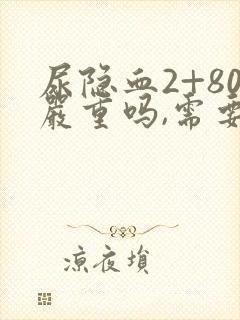 尿隐血2+80
严重吗,需要
凉夜埙